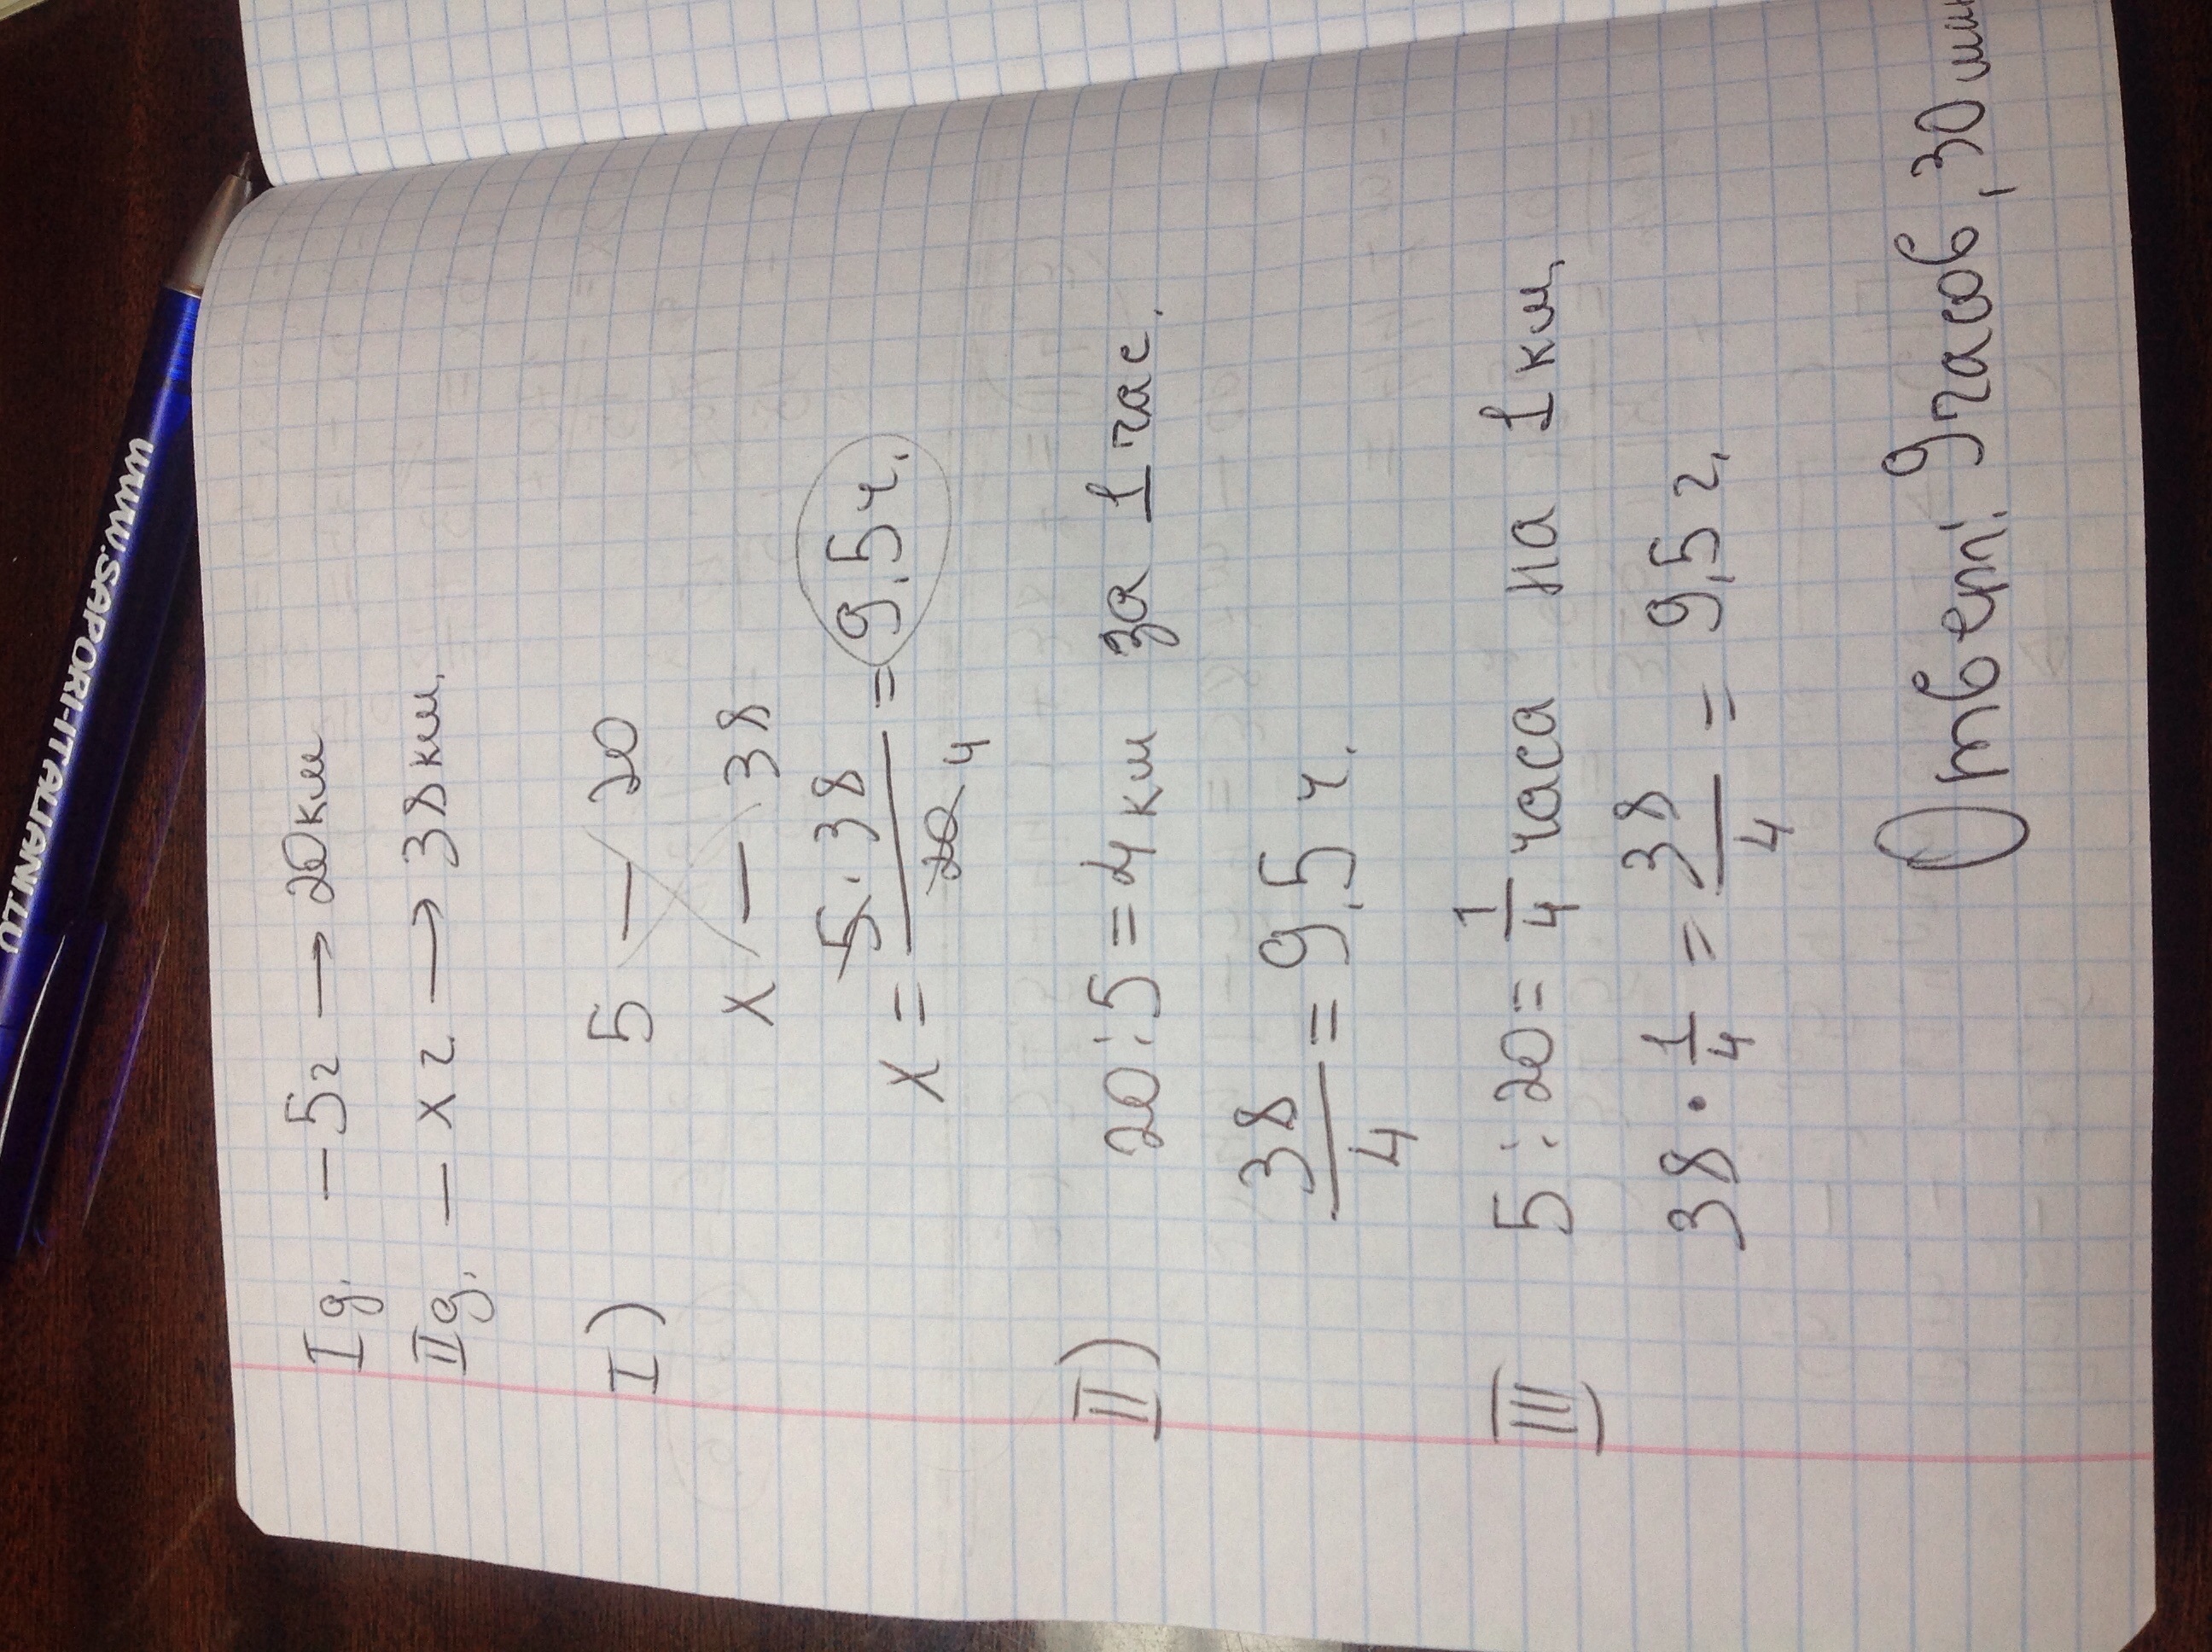 I д. — 5 ч → 20 км
II д. — x ч → 38 км.
I) 5 — 20
x — 38
x = 5 · 38 / 20 4 = 9,5 ч.
II) 20 : 5 = 4 км за 1 час.
38/4 = 9,5 ч.
III 5 : 20 = 1/4 часа на 1 км.
38 · 1/4 = 38/4 = 9,5 ч.
Ответ: 9 часов, 30 мин
www.SAPORI-ITALIANI.RU